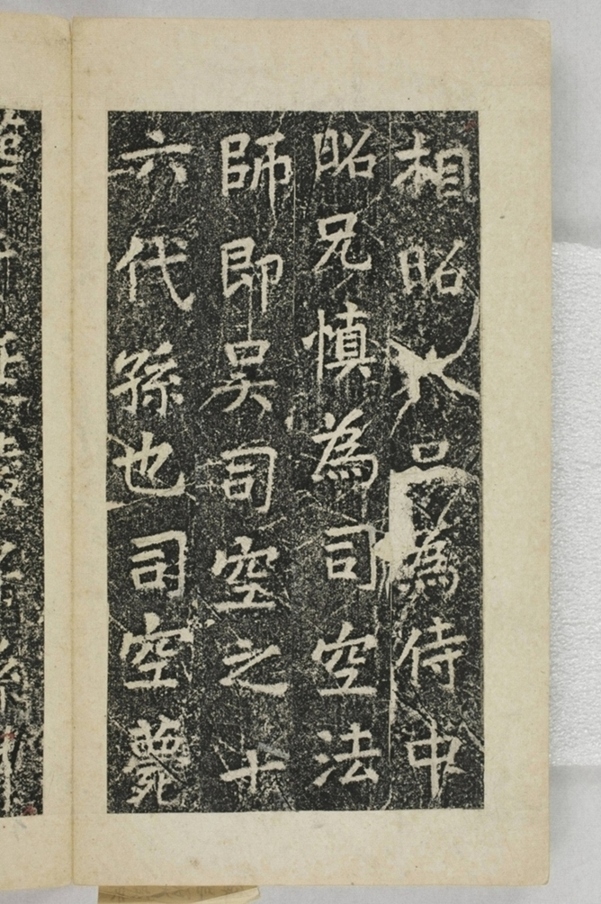 相昭為侍中
昭兄慎為司空法
師即吳司空之十
六代孫也司空薨